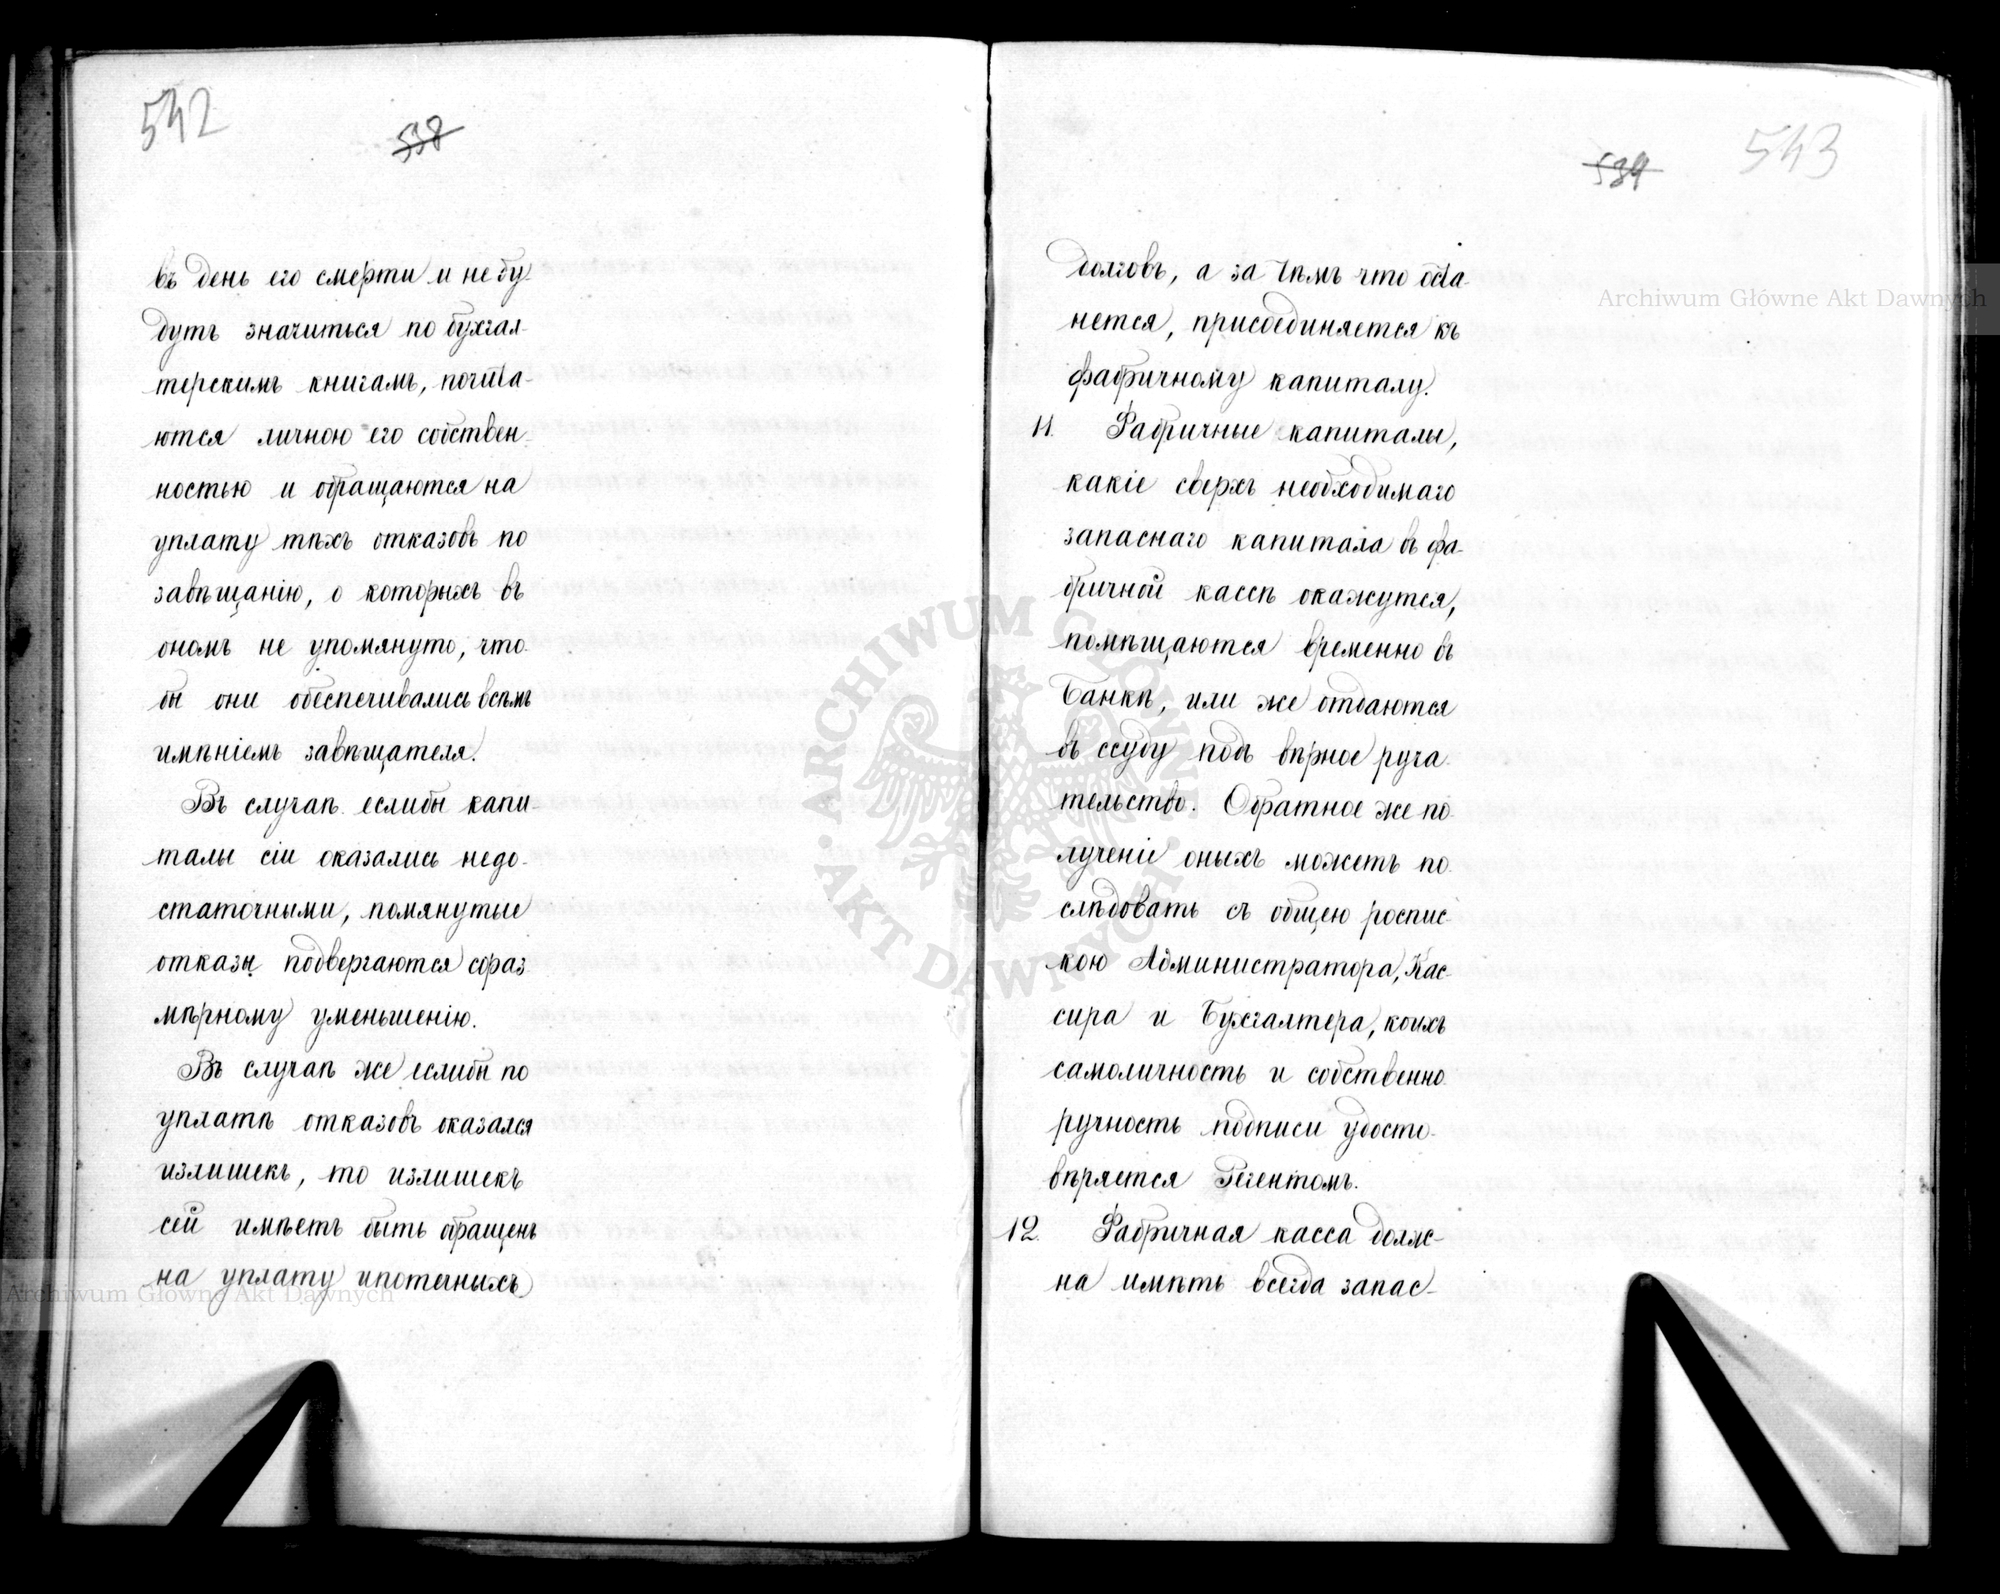 542
538
въ день его смерти и не бу-
дутъ значиться по бухгал-
терскимъ книгамъ, почита-
ются личною его собствен-
ностью и обращаются на
уплату тѣхъ отказовъ по
завѣщанію, о которыхъ въ
ономъ не упомянуто, что-
бы они обеспечивались всѣмъ
имѣніемъ завѣщателя.
Въ случаѣ еслибы капи-
талы сіи оказались недо-
статочными, помянутые
отказы подвергаются сораз-
мѣрному уменьшенію.
Въ случаѣ же еслибы по
уплатѣ отказовъ оказался
излишекъ, то излишекъ
сей имѣетъ быть обращенъ
на уплату ипотечныхъ
539
543
долговъ, а за тѣмъ что оста-
нется, присоединяется къ
фабричному капиталу.
11. Фабричные капиталы,
какіе сверхъ необходимаго
запаснаго капитала въ фа-
бричной кассѣ окажутся,
помѣщаются временно въ
Банкѣ, или же отдаются
въ ссуду подъ вѣрное руча-
тельство. Обратное же по-
лученіе оныхъ можетъ по-
слѣдовать съ общею роспис-
кою Администратора, Кас-
сира и Бухгалтера, коихъ
самоличность и собственно-
ручность подписи удосто-
вѣряется Регентомъ.
12. Фабричная касса долж-
на имѣть всегда запас-
Archiwum Główne Akt Dawnych
ARCHIWUM GŁÓWNE · AKT DAWNYCH ·
Archiwum Główne Akt Dawnych